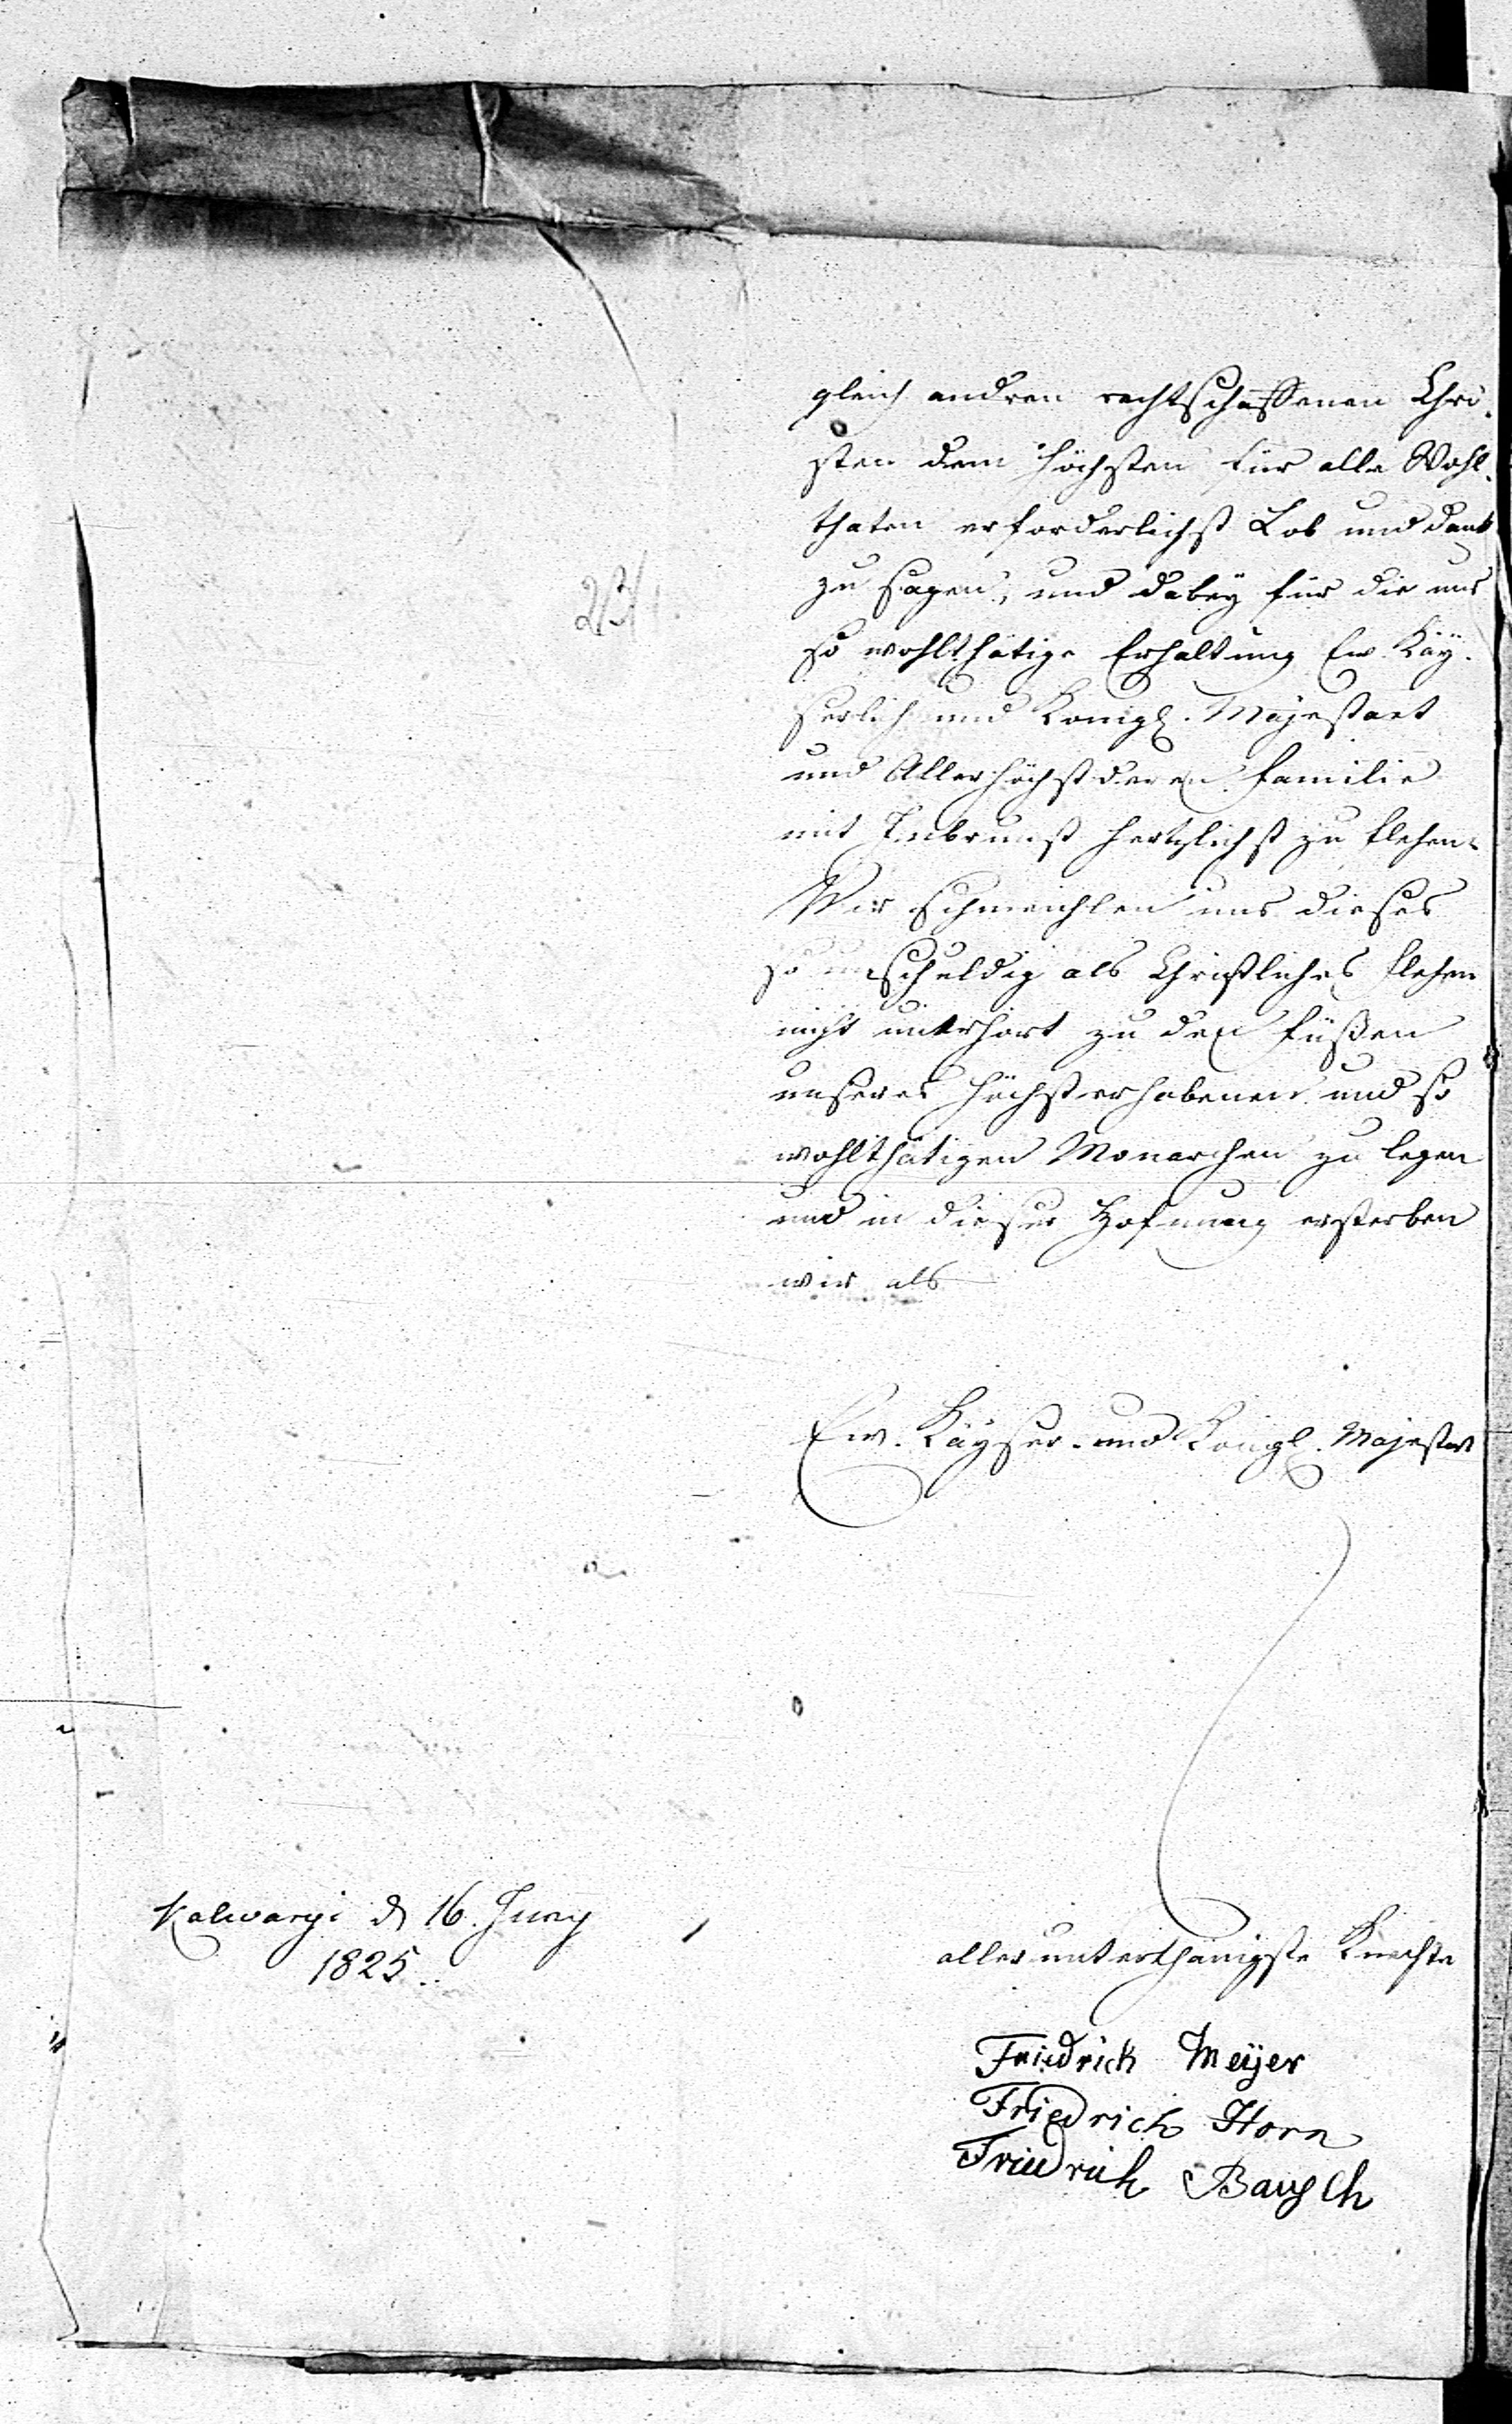 gleich andren rechtschaffenen Chri-
sten dem höchsten für alle Wohl-
thaten erforderlichst Lob und danck
zu sagen, und dabey für die uns
so wohlthätige Erhaltung Ew. Käy-
serlich und Königl. Majestaet
und Allerhöchst deren familie
mit Inbrunst hertzlichst zu flehen.
Wir schmeichlen uns dieses
so unschuldig als Christliches flehen
nicht unerhört zu den füßen
unseres höchst erhabenen und so
wohlthätigen Monarchen zu legen
und in dieser Hofnung ersterben
wir als
Ew. Käyser- und Königl. Majestaet
Kalwaryi d 16. Juny
1825.
aller unterthänigste Knechte
Friedrich Meyer
Friedrich Horn
Friedrich Bausch